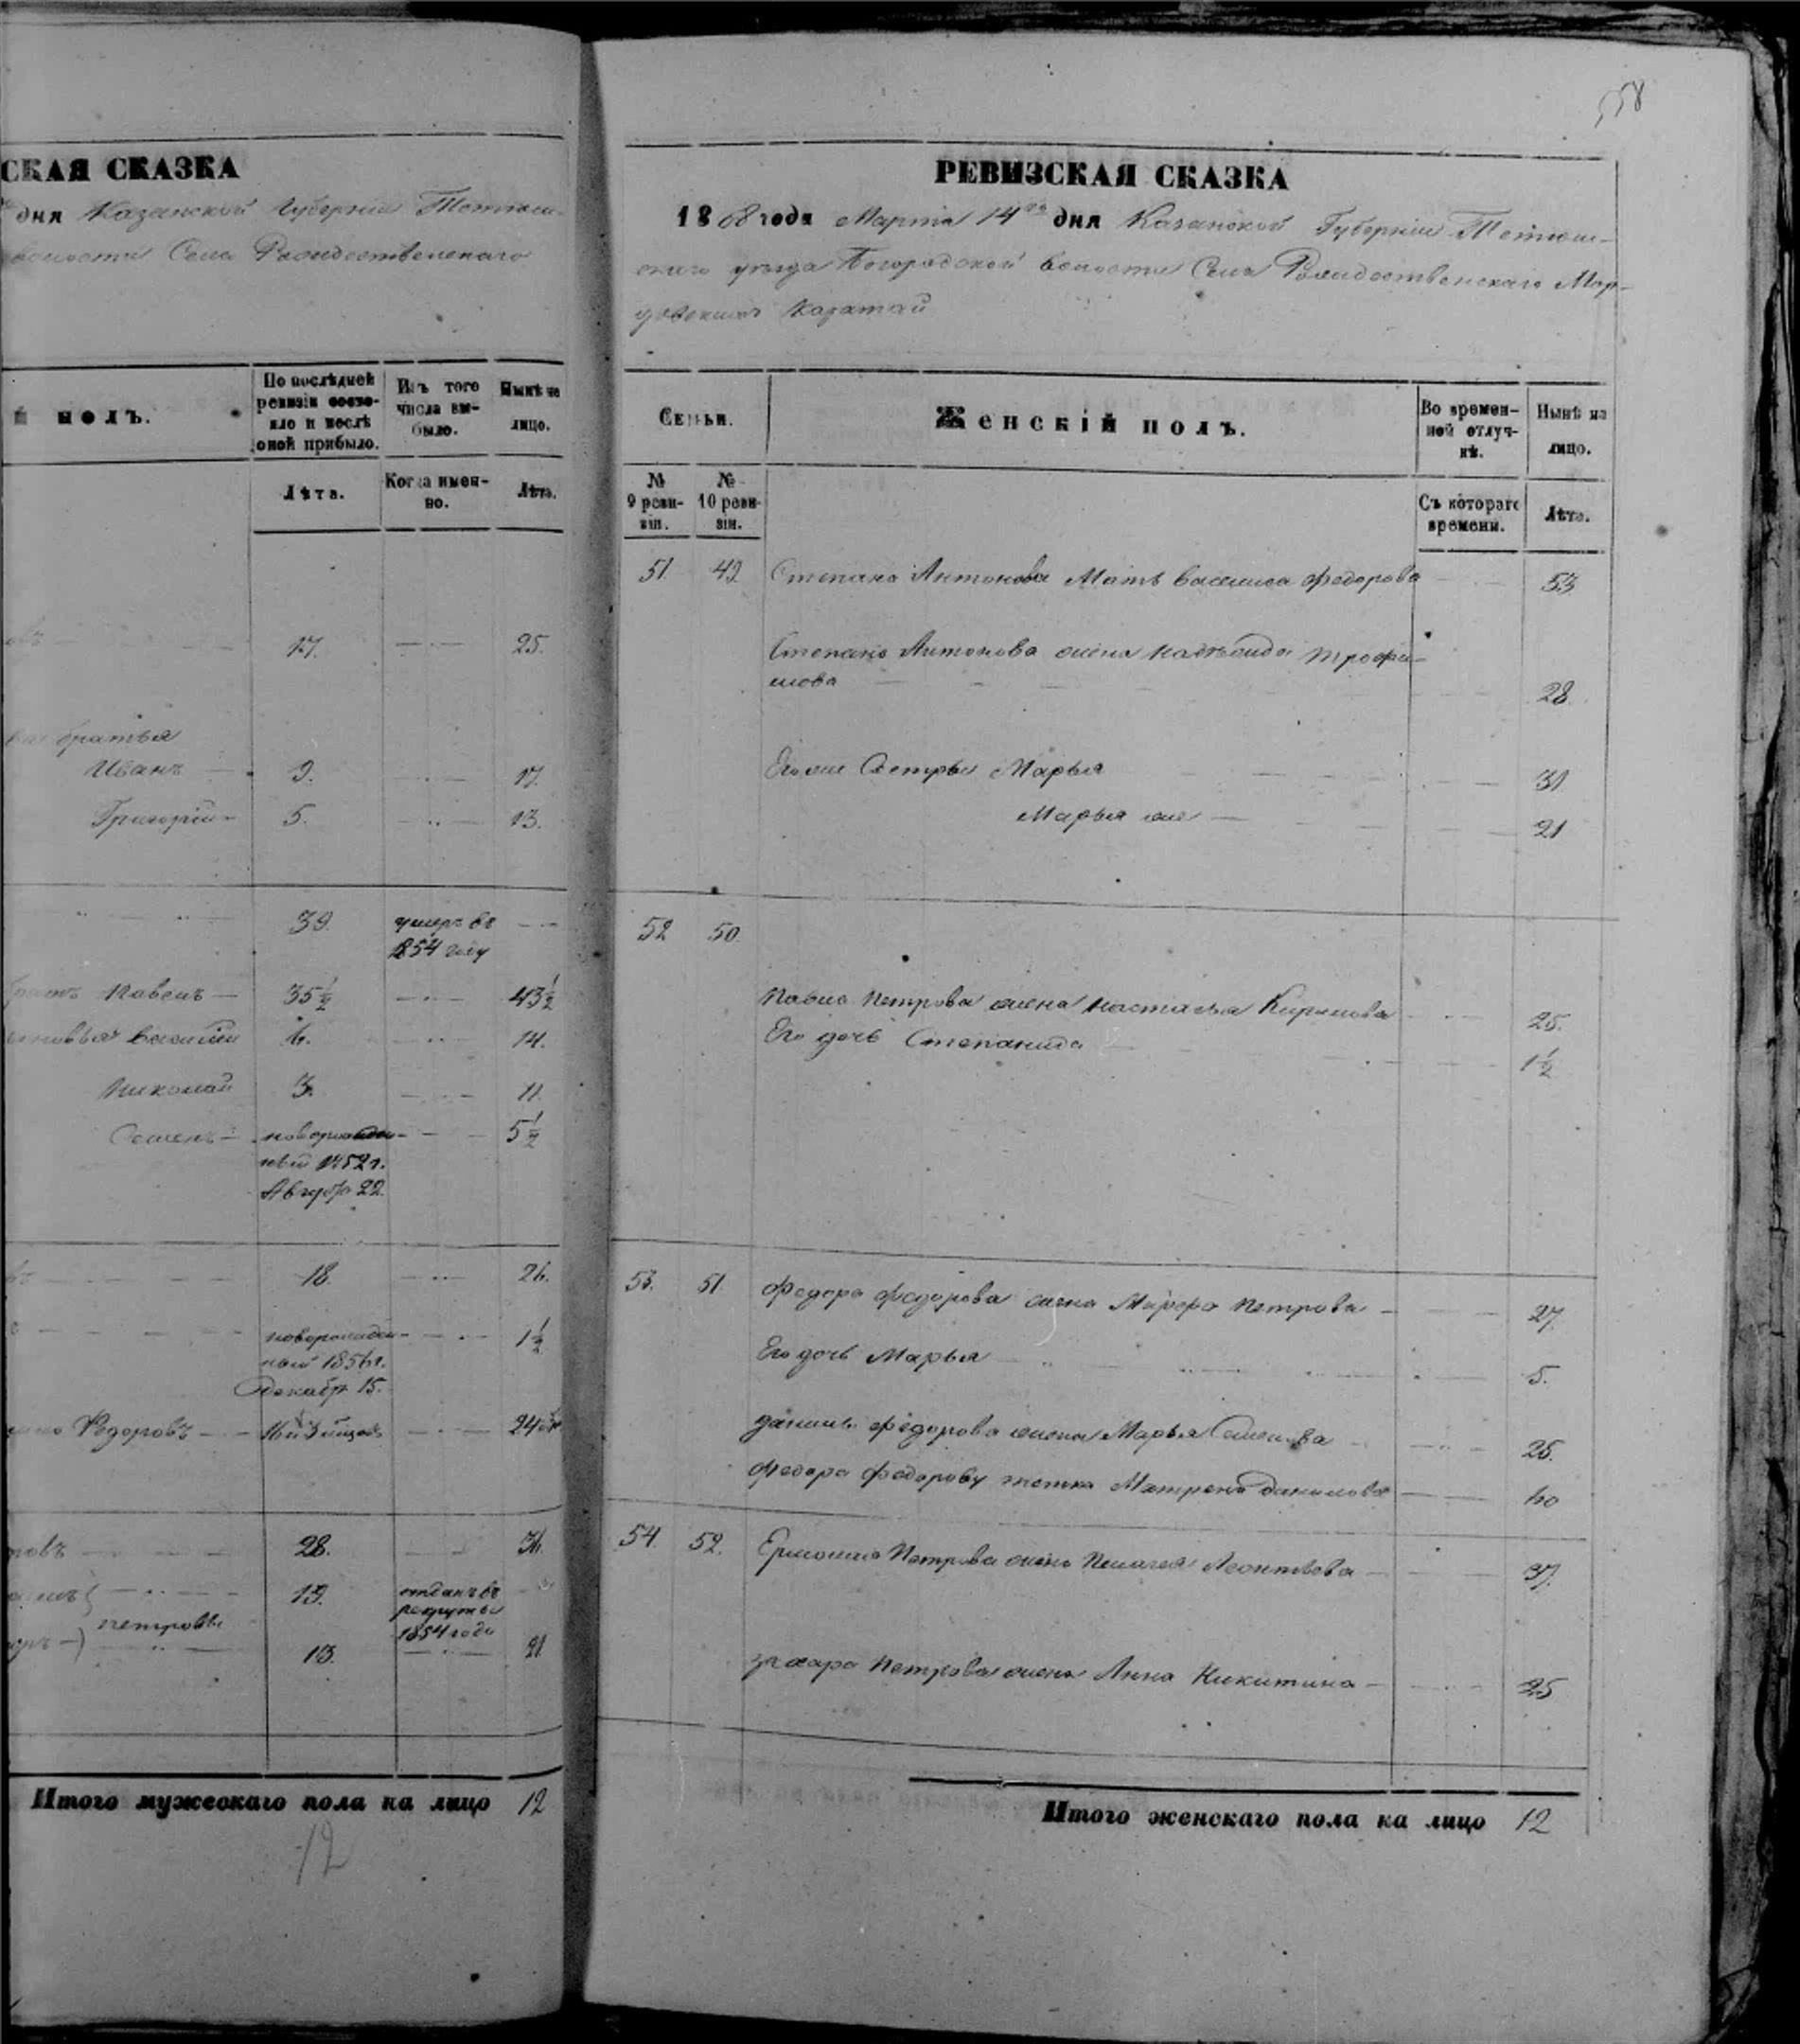 СКАЯ СКАЗКА
дня Казанской Губерніи Тетюш-
волости Села Рождественскаго
й полъ.
По послѣдней ревизіи состо-
яло и послѣ
оной прибыло.
Изъ того
числа вы-
было.
Нынѣ на
лицо.
Лѣта.
Когда имен-
но.
Лѣта.
овъ 17. 25.
братья
Иванъ 9. 17.
Григорій 5. 13.
39. умеръ въ
1854 году
братъ Павелъ 35½ 43½
сыновья Василій 6. 14.
Николай 3. 11.
Семенъ новорожден-
ный 1852 г.
Августа 22. 5½
18. 26.
новорожден-
ный 1856 г.
Декабр. 15. 1½
Федоровъ 24
ровъ 28. 36.
19. отданъ въ
рекруты
1854 года
Петровы
13. 21
Итого мужескаго пола на лицо 12
12
558
РЕВИЗСКАЯ СКАЗКА
1858 года Марта 14го дня Казанской Губерніи Тетюш-
скаго уѣзда Богородской волости Села Рождественскаго Мор-
довскихъ Каратай
Семьи.
Женскій полъ.
Во времен-
ной отлуч-
кѣ.
Нынѣ на
лицо.
№
9 реви-
зіи.
№
10 реви-
зіи.
Съ котораго
времени.
Лѣта.
51. 49. Степана Антонова Мать Василиса Федорова 53.
Степана Антонова жена Надежда Трофи-
мова 28.
Его же Сестры Марья 31
Марья же 21
52 50.
Павла Петрова жена Настасья Кирилова 25.
Его дочь Степанида 1½
53. 51. Федора Федорова жена Марфа Петрова 27.
Его дочь Марья 5.
Данилы Федорова жена Марья Семенова 25.
Федора Федорову тетка Матрена Данилова 60
54. 52. Ермолая Петрова жена Пелагея Леонтьева 37.
Захара Петрова жена Анна Никитина 25
Итого женскаго пола на лицо 12